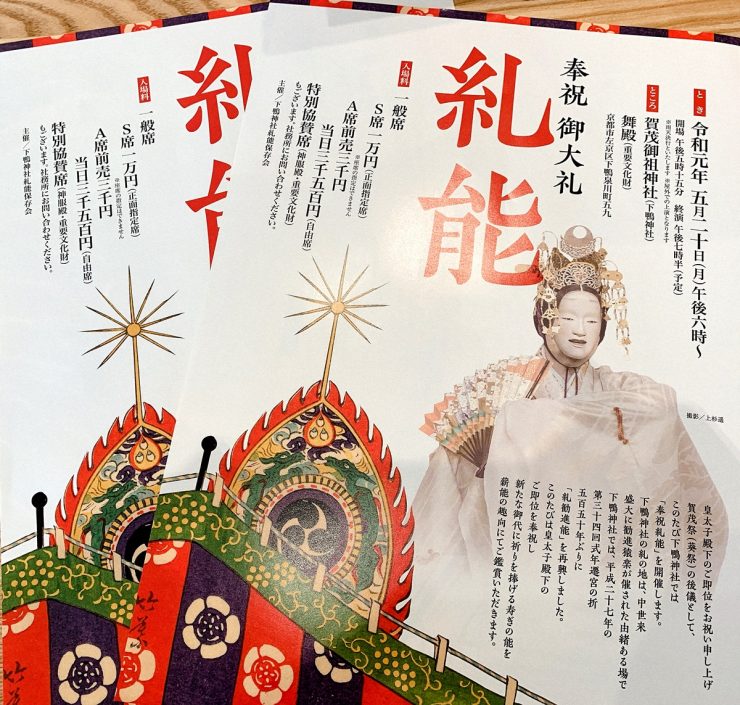 とき
令和元年 五月二十日(月)午後六時〜
開場 午後五時十五分 終演 午後七時半(予定)
※雨天決行といたします ※屋外での上演となります
ところ
賀茂御祖神社(下鴨神社)
舞殿(重要文化財)
京都市左京区下鴨泉川町五九
奉祝 御大礼
糺能
入場料
一般席
S席 一万円(正面指定席)
※座席の指定はできません
A席前売三千円
当日三千五百円(自由席)
特別協賛席(神服殿・重要文化財)
もございます。社務所にお問い合わせください。
主催/下鴨神社糺能保存会
撮影/上杉遥
皇太子殿下のご即位をお祝い申し上げ
賀茂祭(葵祭)の後儀として、
このたび下鴨神社では
「奉祝糺能」を開催します。
下鴨神社の糺の地は、中世来
盛大に勧進猿楽が催された由緒ある場で
下鴨神社では、平成二十七年の
第三十四回式年遷宮の折
五百五十年ぶりに
「糺勧進能」を再興しました。
このたびは皇太子殿下の
ご即位を奉祝し
新たな御代に祈りを捧げる寿ぎの能を
薪能の趣向にてご鑑賞いただきます。
糺
入場料
一般席
S席 一万円(正面指定席)
※座席の指定はできません
A席前売三千円
当日三千五百円(自由席)
特別協賛席(神服殿・重要文化財)
もございます。社務所にお問い合わせください。
主催/下鴨神社糺能保存会